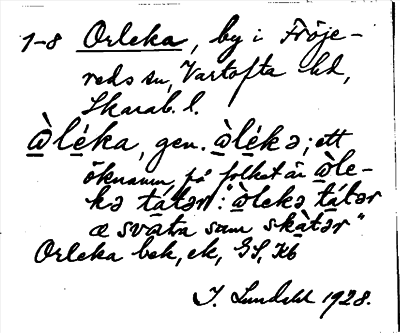 1-8 Orleka, by i Fröje-
reds sn, Vartofta hd,
Skarab. l.
ò̲lé̲ka, gen. ò̲lé̲kə; ett
öknamn på folket är ò̲le-
kə tá̲tər: "ò̲lekə tá̲tər
æ sva̲ta som skà̲tər"
Orleka bek, ek, GS, Kb
I. Lundahl 1928.